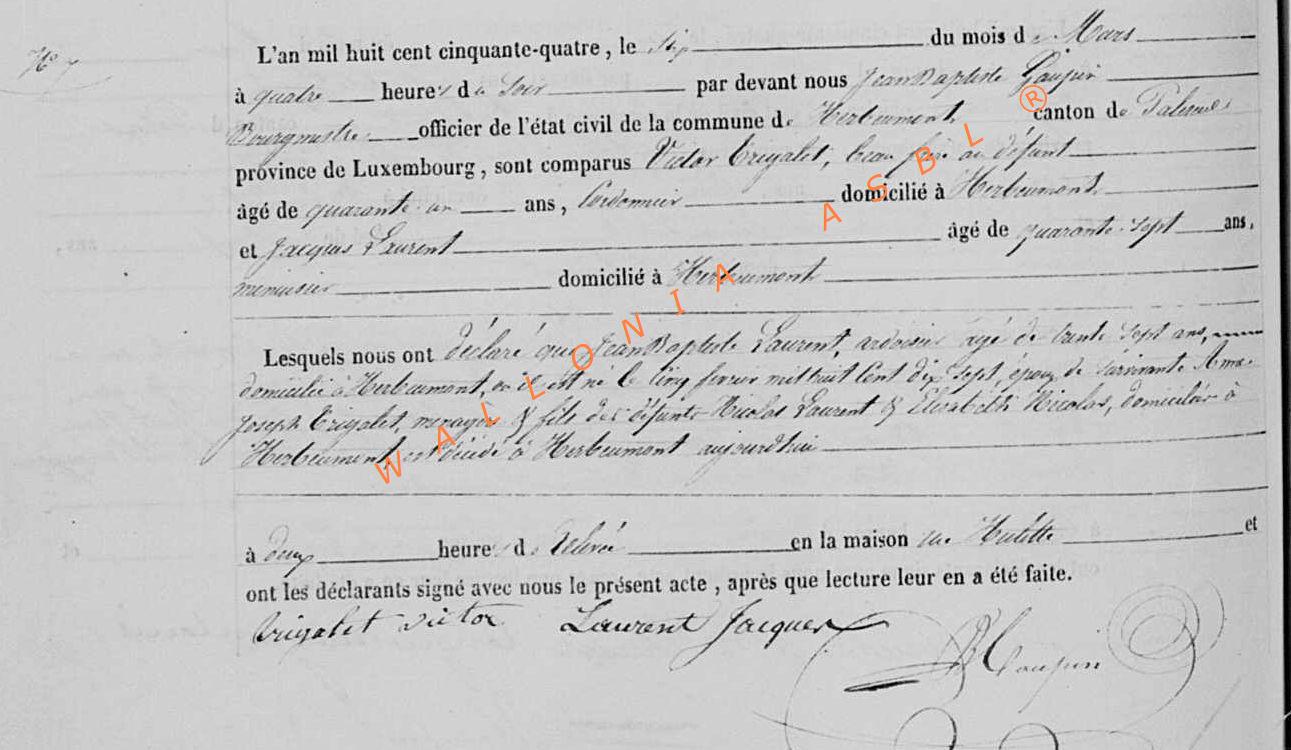 N° 7
L'an mil huit cent cinquante-quatre, le six du mois de Mars
à quatre heures du Soir par devant nous Jean Baptiste Gaupin
Bourgmestre officier de l'état civil de la commune de Herbeumont, canton de Paliseul
province de Luxembourg, sont comparus Victor Trigalet, beau frère au défunt
âgé de quarante un ans, Cordonnier domicilié à Herbeumont
et Jacques Laurent âgé de quarante sept ans,
menuisier domicilié à Herbeumont
Lesquels nous ont déclaré que Jean Baptiste Laurent, ardoisier âgé de trente sept ans,
domicilié à Herbeumont, où il est né le cinq fevrier mil huit Cent dix sept, epoux de survivante Anne
Joseph Trigalet, menagère & fils des défunts Nicolas Laurent & Elisabeth Nicolas, domiciliés à
Herbeumont, est décédé à Herbeumont aujourdhui
à deux heures de Relevée en la maison rue Hulette et
ont les déclarants signé avec nous le présent acte, après que lecture leur en a été faite.
trigalet victor Laurent Jacques
JB Gaupin
WALLONIA ASBL ®